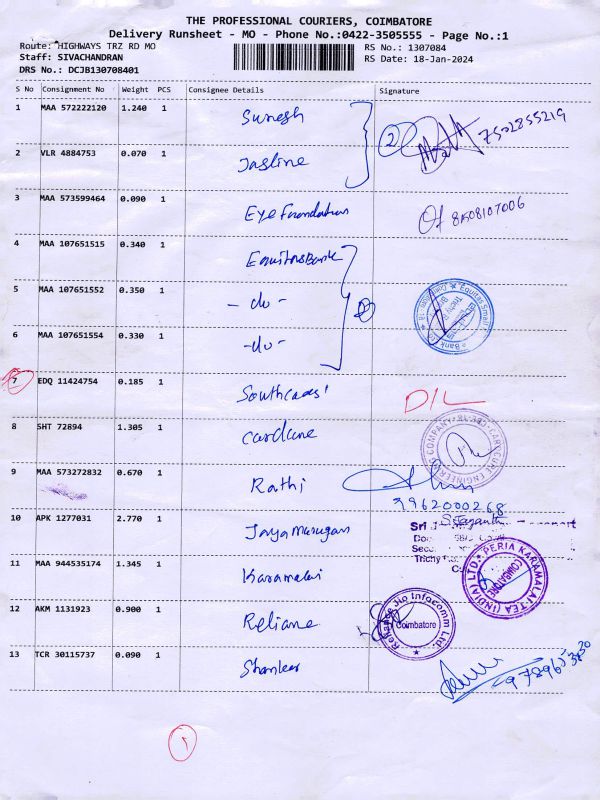 THE PROFESSIONAL COURIERS, COIMBATORE
Delivery Runsheet - MO - Phone No.:0422-3505555 - Page No.:1
Route: HIGHWAYS TRZ RD MO RS No.: 1307084
Staff: SIVACHANDRAN RS Date: 18-Jan-2024
DRS No.: DCJB130708401
S No Consignment No Weight PCS Consignee Details Signature
1 MAA 572222120 1.240 1 Suresh 2 7502855219
2 VLR 4884753 0.070 1 Jasline
3 MAA 573599464 0.090 1 Eye Foundation 8508107006
4 MAA 107651515 0.340 1 Equitas Bank
5 MAA 107651552 0.350 1 - do -
6 MAA 107651554 0.330 1 - do -
Equitas Small
7 EDQ 11424754 0.185 1 D/L
8 SHT 72894 1.305 1
9 MAA 573272832 0.670 1 Rathi
9962000268
10 APK 1277031 2.770 1 Jayamurugan
Sri
Trichy
11 MAA 944535174 1.345 1 Karamalai
PERIA KARAMALAI TEA (INDIA) LTD.
COIMBATORE
12 AKM 1131923 0.900 1 Reliance
Reliance Jio Infocomm Ltd.
Coimbatore
13 TCR 30115737 0.090 1 Shankar
1